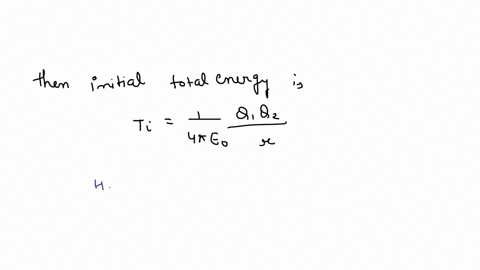 then initial total energy is
Ti = 1/4πE0 Q1Q2/r
H.